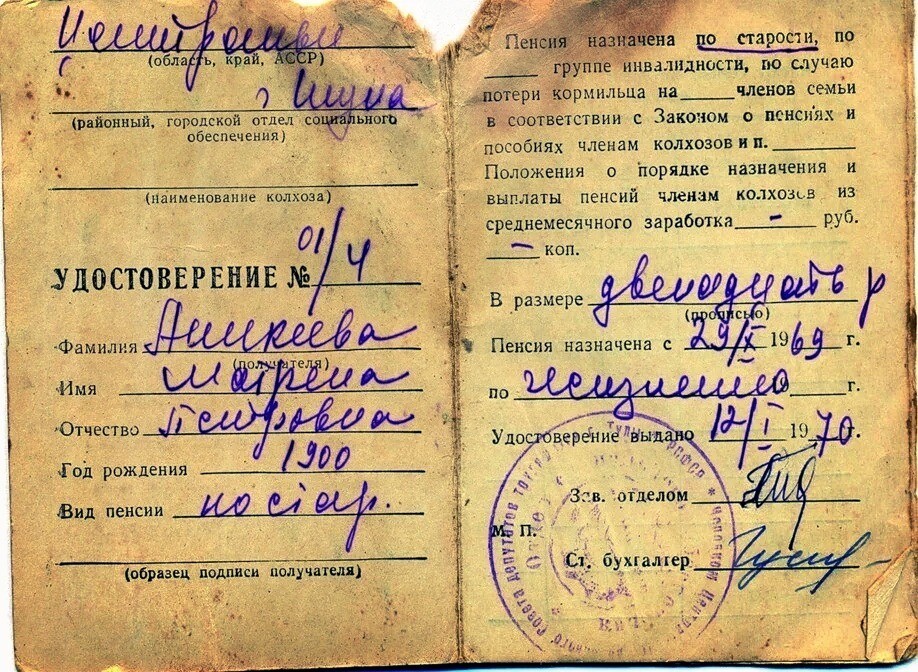 Центральн
(область, край, АССР)
г
(районный, городской отдел социального
обеспечения)
(наименование колхоза)
УДОСТОВЕРЕНИЕ № 01/4
Фамилия Аникеева
(получателя)
Имя Матрена
Отчество Петровна
Год рождения 1900
Вид пенсии по стар.
(образец подписи получателя)
Пенсия назначена по старости, по
____ группе инвалидности, по случаю
потери кормильца на ____ членов семьи
в соответствии с Законом о пенсиях и
пособиях членам колхозов и п. ____
Положения о порядке назначения и
выплаты пенсий членам колхозов из
среднемесячного заработка - руб.
- коп.
В размере двенадцать р
(прописью)
Пенсия назначена с 29/X 1969 г.
по жизненно 19 г.
Удостоверение выдано 12/I 1970 г.
Зав. отделом
М. П.
Ст. бухгалтер